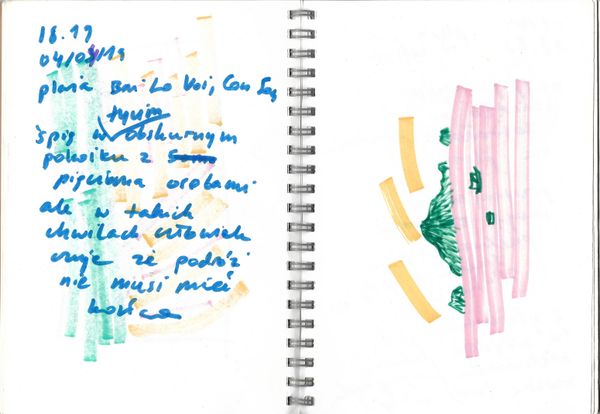 18.19
04/03/19
plaża Bai Lo Voi, Con Sơn
tycim
śpię w obskurnym
pokoiku z
pięcioma osobami
ale w takich
chwilach człowiek
czuje że podróż
nie musi mieć
końca